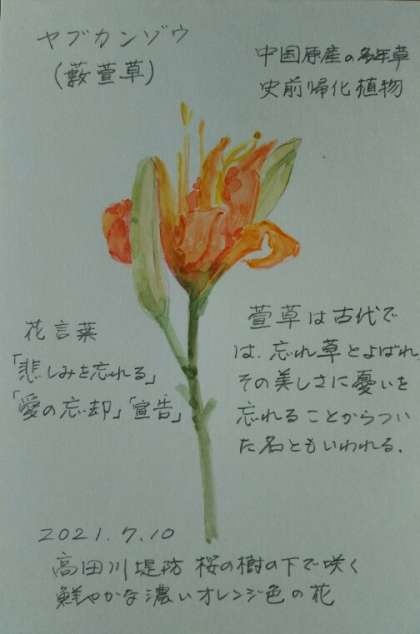 ヤブカンゾウ
(藪萱草)
中国原産の多年草
史前帰化植物
花言葉
「悲しみを忘れる」
「愛の忘却」「宣告」
萱草は古代で
は、忘れ草とよばれ
その美しさに憂いを
忘れることからつい
た名ともいわれる.
2021.7.10
高田川堤防 桜の樹の下で咲く
鮮やかな濃いオレンジ色の花